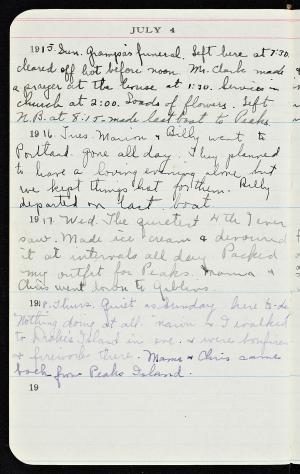 JULY 4
1915. Sun. Grampa's funeral. Left here at 7:30.
cleared off hot before noon. Mr. Clark made
a prayer at the house at 1:30. Services in
church at 2:00. Loads of flowers. Left
N.B. at 8:15. made last boat to Peaks.
1916. Tues. Marion & Billy went to
Portland. gone all day. They planned
to have a loving evening alone but
we kept things hot for them. Billy
departed on last boat.
1917. Wed. The quietest 4th I ever
saw. Made ice cream & devoured
it at intervals all day. Packed
my outfit for Peaks. Mama &
Chris went down to
1918. Thurs. Quiet as Sunday here to-day
Nothing doing at all. & I walked
to Island in eve. & were bonfires
& fireworks there. Mama & Chris came
back from Peaks Island.
19